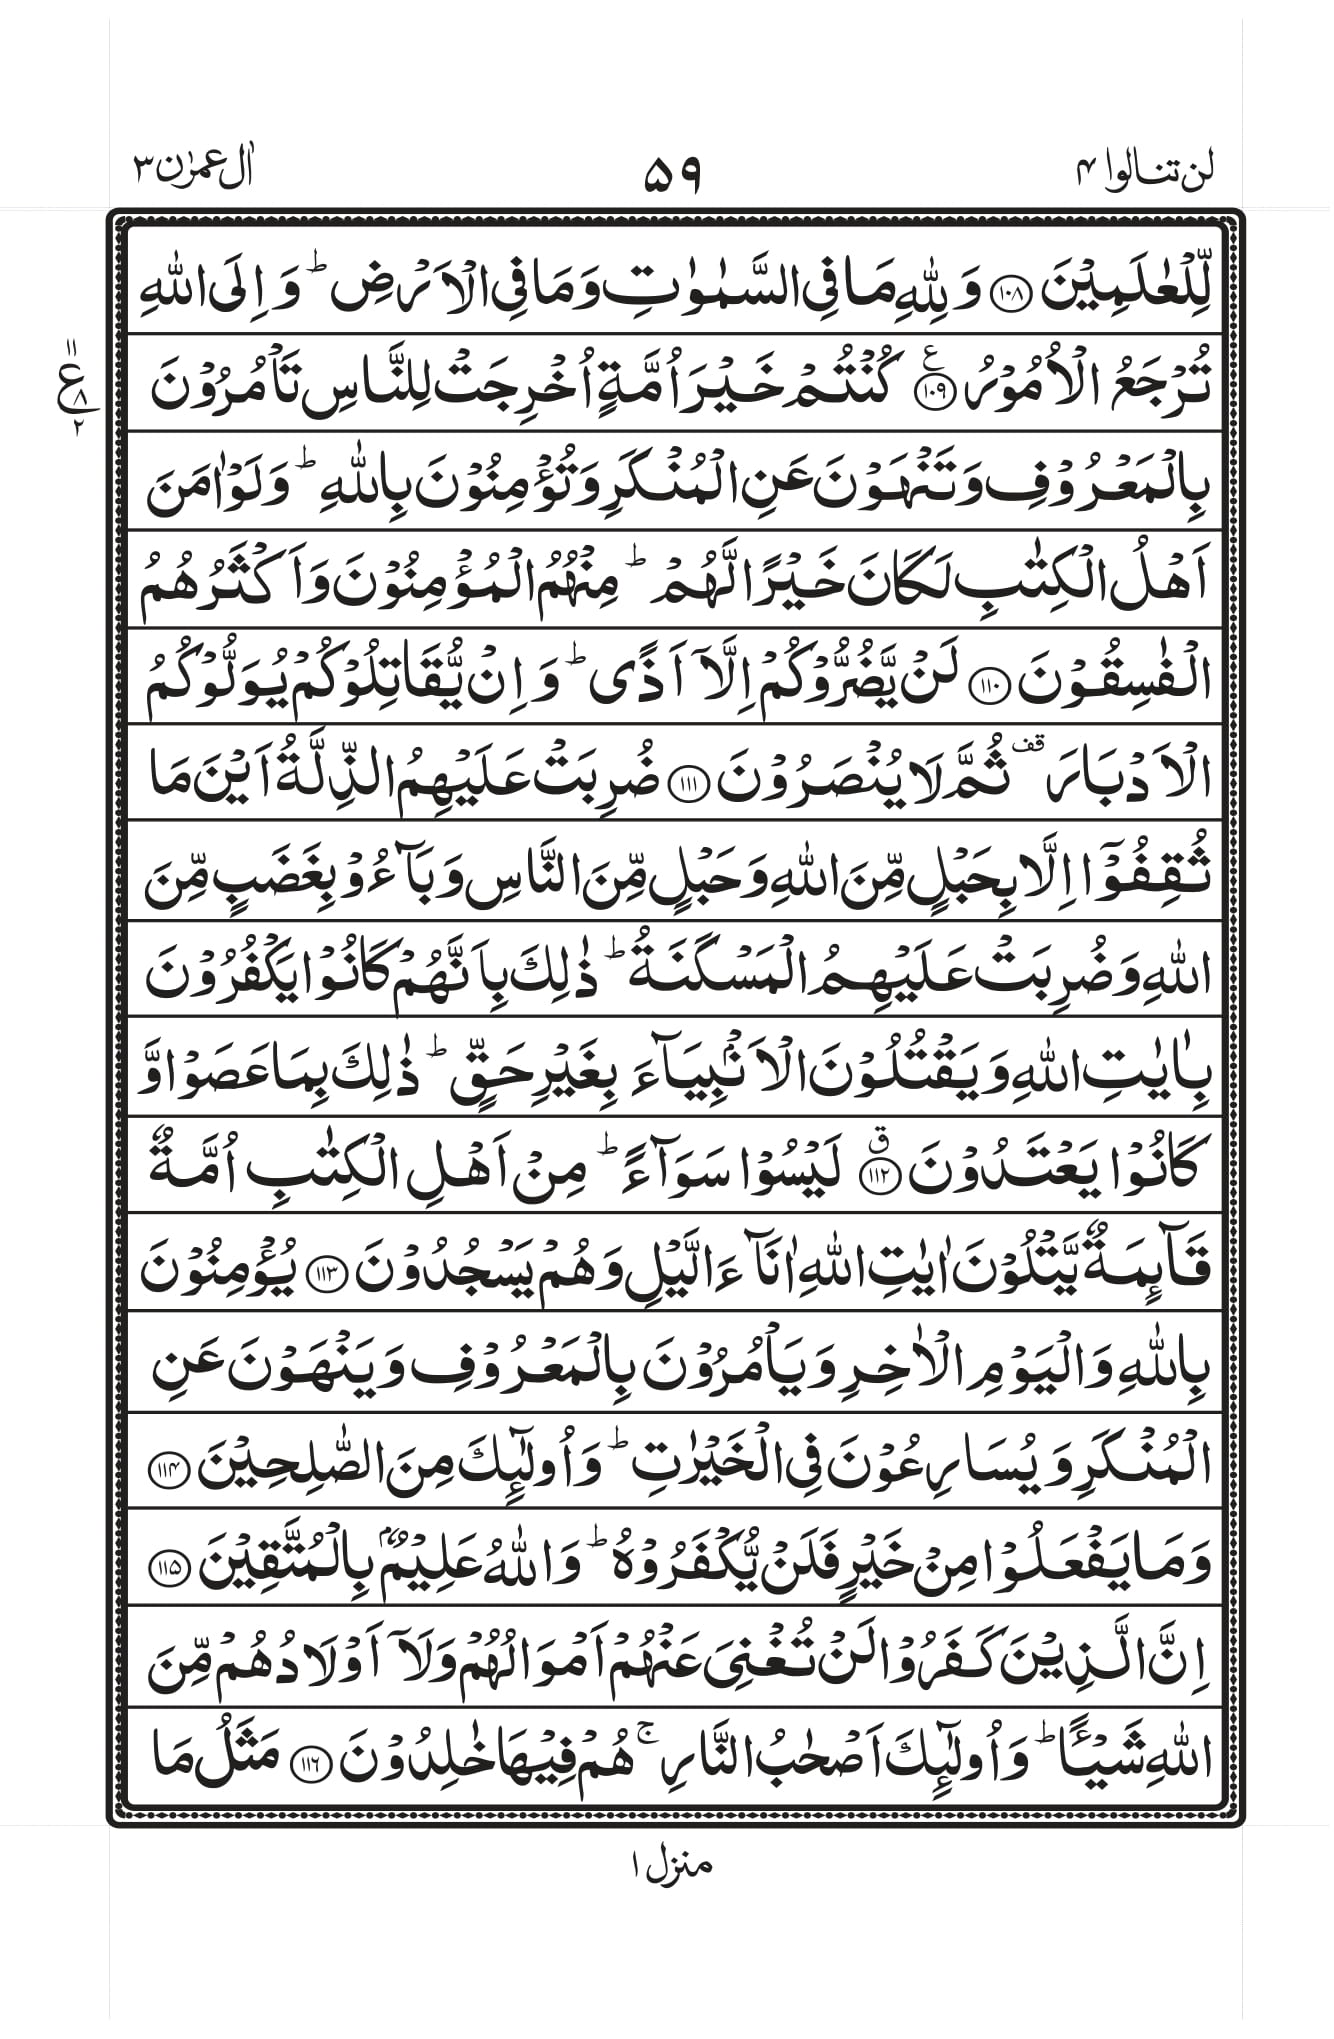 لن تنالوا ۴
۵۹
اٰل عمرٰن ۳
لِّلۡعٰلَمِیۡنَ ﴿۱۰۸﴾ وَ لِلّٰہِ مَا فِی السَّمٰوٰتِ وَ مَا فِی الۡاَرۡضِ ؕ وَ اِلَی اللّٰہِ
تُرۡجَعُ الۡاُمُوۡرُ ﴿۱۰۹﴾٪ کُنۡتُمۡ خَیۡرَ اُمَّۃٍ اُخۡرِجَتۡ لِلنَّاسِ تَاۡمُرُوۡنَ
۱۱
ع
۸
۲
بِالۡمَعۡرُوۡفِ وَ تَنۡہَوۡنَ عَنِ الۡمُنۡکَرِ وَ تُؤۡمِنُوۡنَ بِاللّٰہِ ؕ وَ لَوۡ اٰمَنَ
اَہۡلُ الۡکِتٰبِ لَکَانَ خَیۡرًا لَّہُمۡ ؕ مِنۡہُمُ الۡمُؤۡمِنُوۡنَ وَ اَکۡثَرُہُمُ
الۡفٰسِقُوۡنَ ﴿۱۱۰﴾ لَنۡ یَّضُرُّوۡکُمۡ اِلَّاۤ اَذًی ؕ وَ اِنۡ یُّقَاتِلُوۡکُمۡ یُوَلُّوۡکُمُ
الۡاَدۡبَارَ ۟ ثُمَّ لَا یُنۡصَرُوۡنَ ﴿۱۱۱﴾ ضُرِبَتۡ عَلَیۡہِمُ الذِّلَّۃُ اَیۡنَ مَا
ثُقِفُوۡۤا اِلَّا بِحَبۡلٍ مِّنَ اللّٰہِ وَ حَبۡلٍ مِّنَ النَّاسِ وَ بَآءُوۡ بِغَضَبٍ مِّنَ
اللّٰہِ وَ ضُرِبَتۡ عَلَیۡہِمُ الۡمَسۡکَنَۃُ ؕ ذٰلِکَ بِاَنَّہُمۡ کَانُوۡا یَکۡفُرُوۡنَ
بِاٰیٰتِ اللّٰہِ وَ یَقۡتُلُوۡنَ الۡاَنۡۢبِیَآءَ بِغَیۡرِ حَقٍّ ؕ ذٰلِکَ بِمَا عَصَوۡا وَّ
کَانُوۡا یَعۡتَدُوۡنَ ﴿۱۱۲﴾ق لَیۡسُوۡا سَوَآءً ؕ مِنۡ اَہۡلِ الۡکِتٰبِ اُمَّۃٌ
قَآئِمَۃٌ یَّتۡلُوۡنَ اٰیٰتِ اللّٰہِ اٰنَآءَ الَّیۡلِ وَ ہُمۡ یَسۡجُدُوۡنَ ﴿۱۱۳﴾ یُؤۡمِنُوۡنَ
بِاللّٰہِ وَ الۡیَوۡمِ الۡاٰخِرِ وَ یَاۡمُرُوۡنَ بِالۡمَعۡرُوۡفِ وَ یَنۡہَوۡنَ عَنِ
الۡمُنۡکَرِ وَ یُسَارِعُوۡنَ فِی الۡخَیۡرٰتِ ؕ وَ اُولٰٓئِکَ مِنَ الصّٰلِحِیۡنَ ﴿۱۱۴﴾
وَ مَا یَفۡعَلُوۡا مِنۡ خَیۡرٍ فَلَنۡ یُّکۡفَرُوۡہُ ؕ وَ اللّٰہُ عَلِیۡمٌۢ بِالۡمُتَّقِیۡنَ ﴿۱۱۵﴾
اِنَّ الَّذِیۡنَ کَفَرُوۡا لَنۡ تُغۡنِیَ عَنۡہُمۡ اَمۡوَالُہُمۡ وَ لَاۤ اَوۡلَادُہُمۡ مِّنَ
اللّٰہِ شَیۡـًٔا ؕ وَ اُولٰٓئِکَ اَصۡحٰبُ النَّارِ ۚ ہُمۡ فِیۡہَا خٰلِدُوۡنَ ﴿۱۱۶﴾ مَثَلُ مَا
منزل ۱